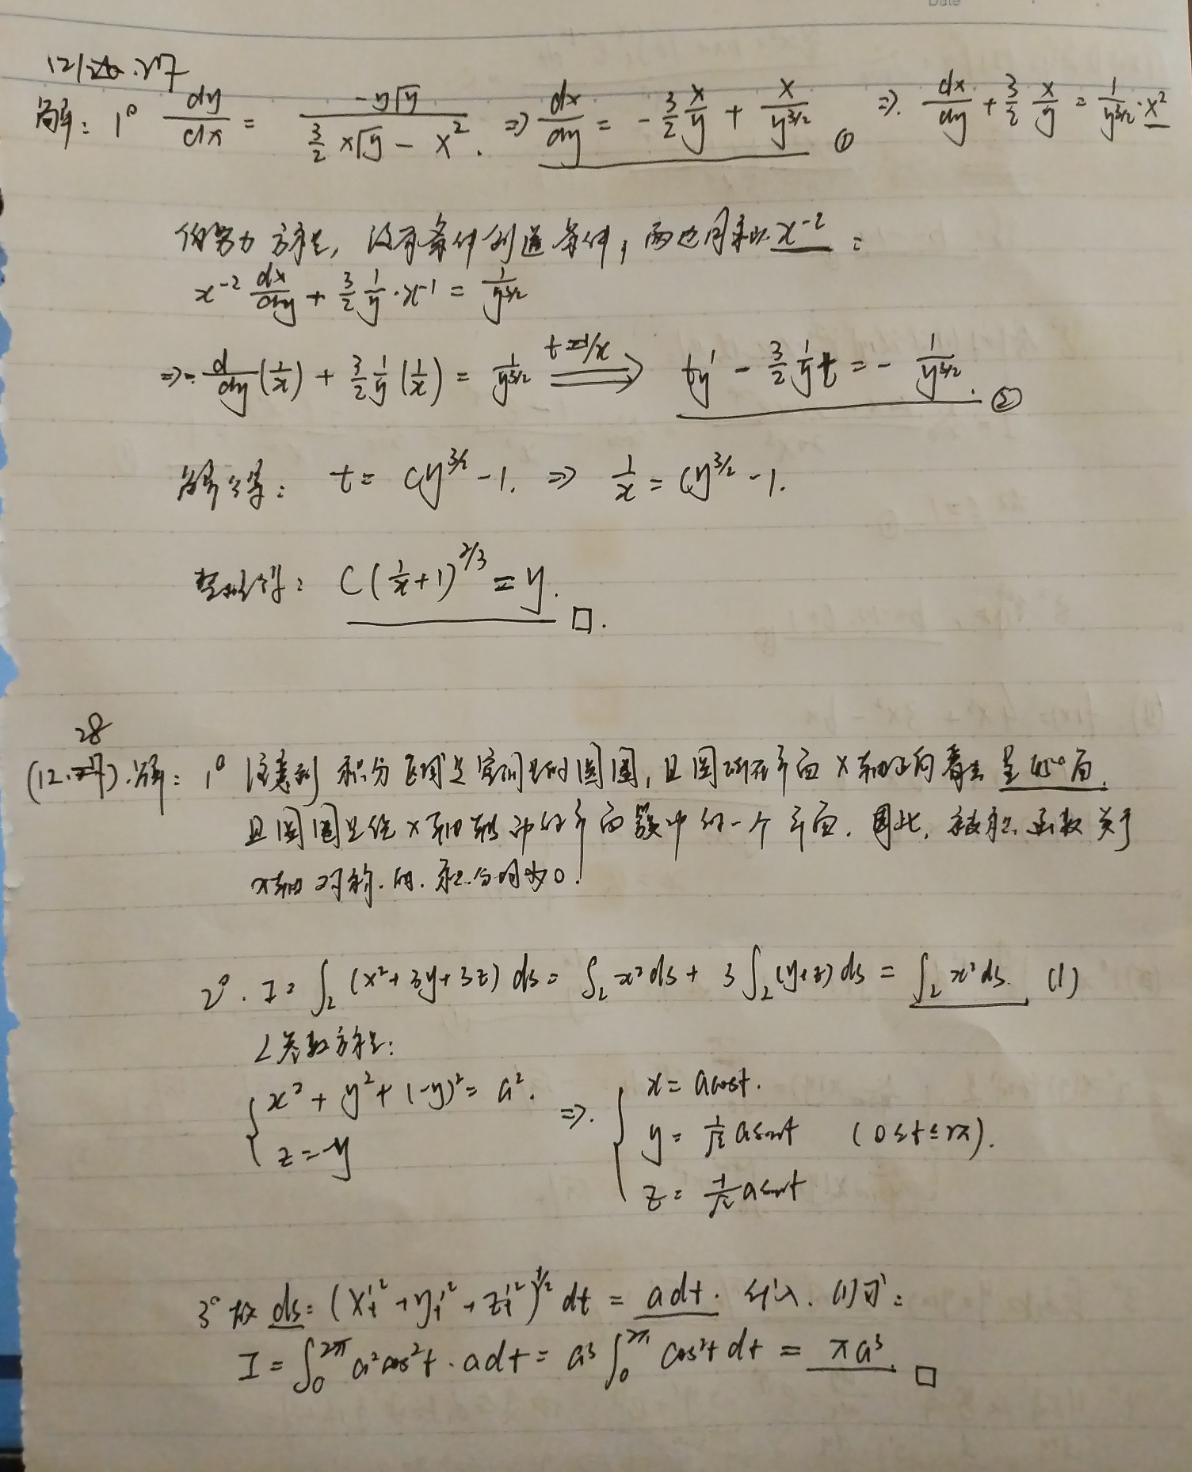 Date
12/26.27
解: 1° dy/dx = -y√y / (3/2 x√y - x²). ⇒ dx/dy = -3/2 x/y + x/y^{3/2} ① ⇒. dx/dy + 3/2 x/y = 1/y^{3/2}·x²
伯努力方程, 没有条件创造条件, 两边同乘以 x⁻² :
x⁻² dx/dy + 3/2 1/y · x⁻¹ = 1/y^{3/2}
⇒ - d/dy (1/x) + 3/2 1/y (1/x) = 1/y^{3/2} t=1/x ⟹ t_y' - 3/2 1/y t = - 1/y^{3/2}. ②
解得: t = Cy^{3/2} - 1. ⇒ 1/x = Cy^{3/2} - 1.
整理得: C(1/x + 1)^{2/3} = y. □.
28
(12.27).解: 1° 注意到 积分区间是空间里的圆周, 且圆所在平面 x 轴正向看去 呈45°角.
且圆周是绕 x 轴转动的平面簇中的一个平面. 因此, 被积函数关于
x轴对称.的.积分均为0!
2°. I = ∫_L (x²+3y+3z) ds = ∫_L x² ds + 3∫_L (y+z) ds = ∫_L x² ds. (1)
L参数方程:
{ x² + y² + (-y)² = a². z = -y ⇒. { x = acost. y = 1/√2 asint z = -1/√2 asint (0≤t≤2π).
3° 故 ds = (x_t'² + y_t'² + z_t'²)^{1/2} dt = adt. 代入. (1)可:
I = ∫₀^{2π} a²cos²t · adt = a³ ∫₀^{2π} cos²t dt = πa³. □